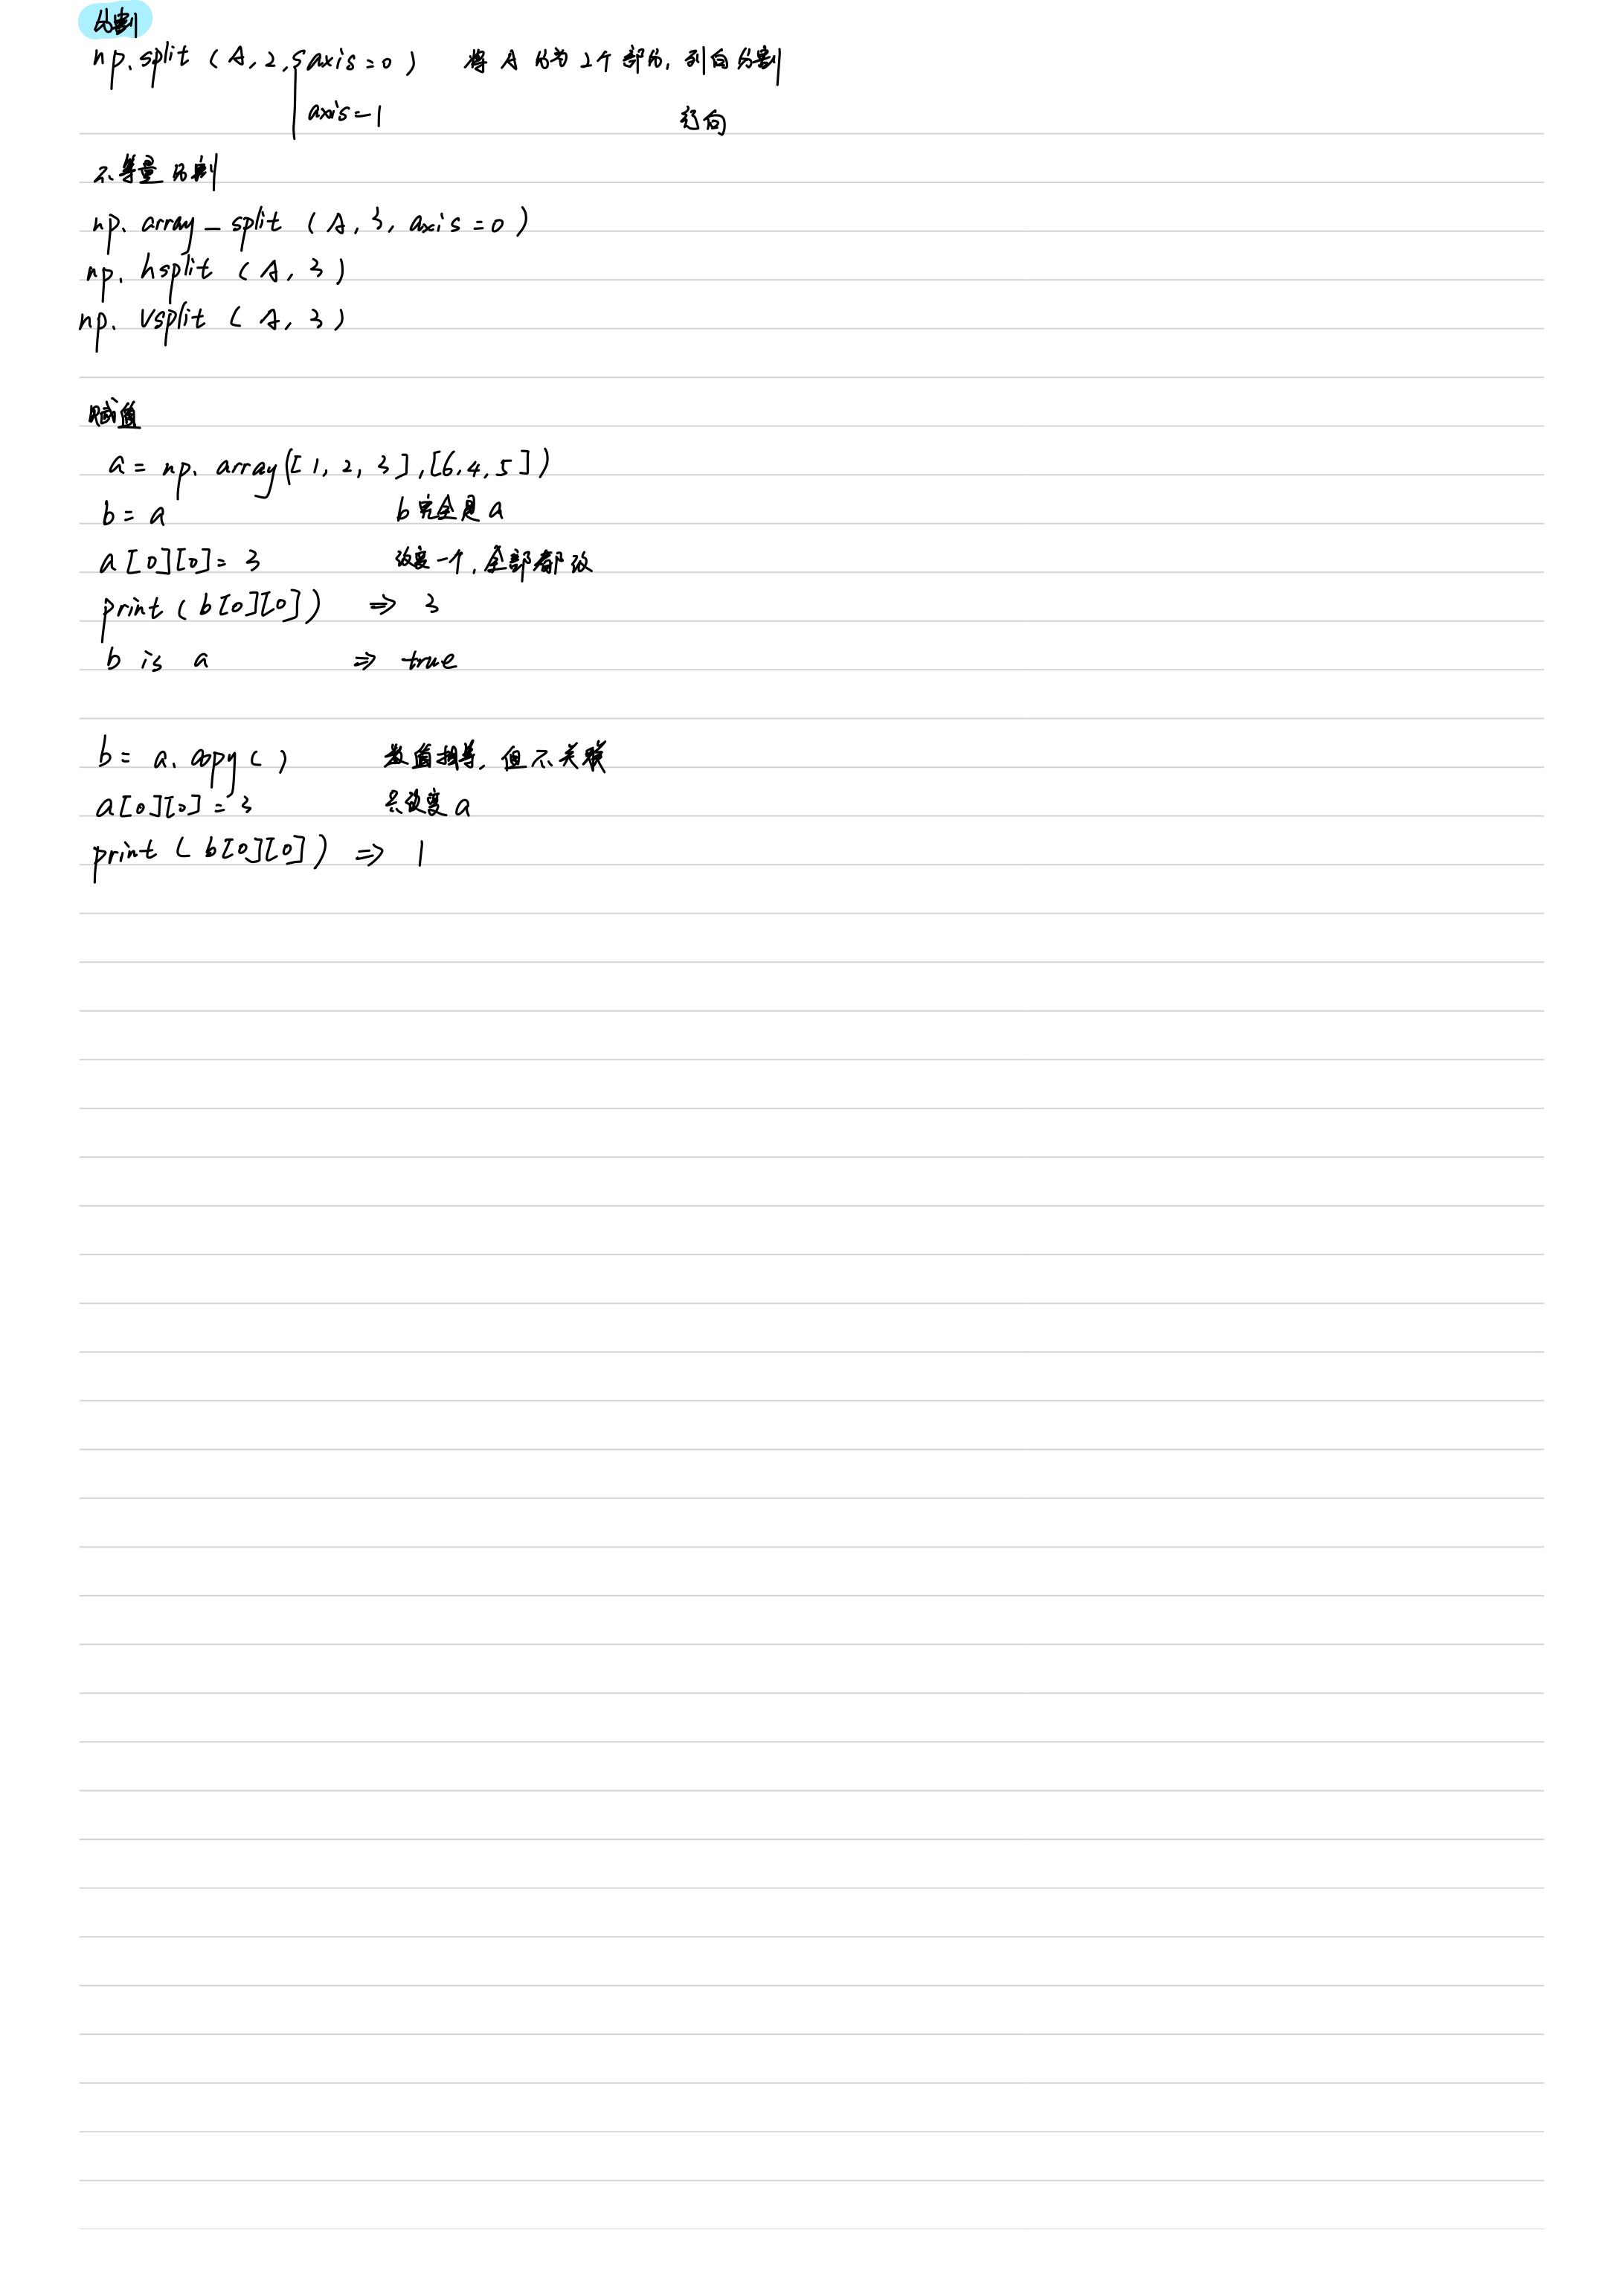 分割
np.split (A, 2, axis=0) 将 A 分为 2个 部分, 列向分割
axis=1 行向
不等量分割
np. array_split (A, 3, axis=0)
np. hsplit (A, 3)
np. Vsplit (A, 3)
赋值
a = np. array([1, 2, 3],[6,4,5])
b = a b完全是a
a[0][0]= 3 改变一个, 全部都改
print (b[0][0]) ⇒ 3
b is a ⇒ true
b = a. copy() 数值相等, 但不关联
a[0][0] = 3 只改变 a
print (b[0][0]) ⇒ 1